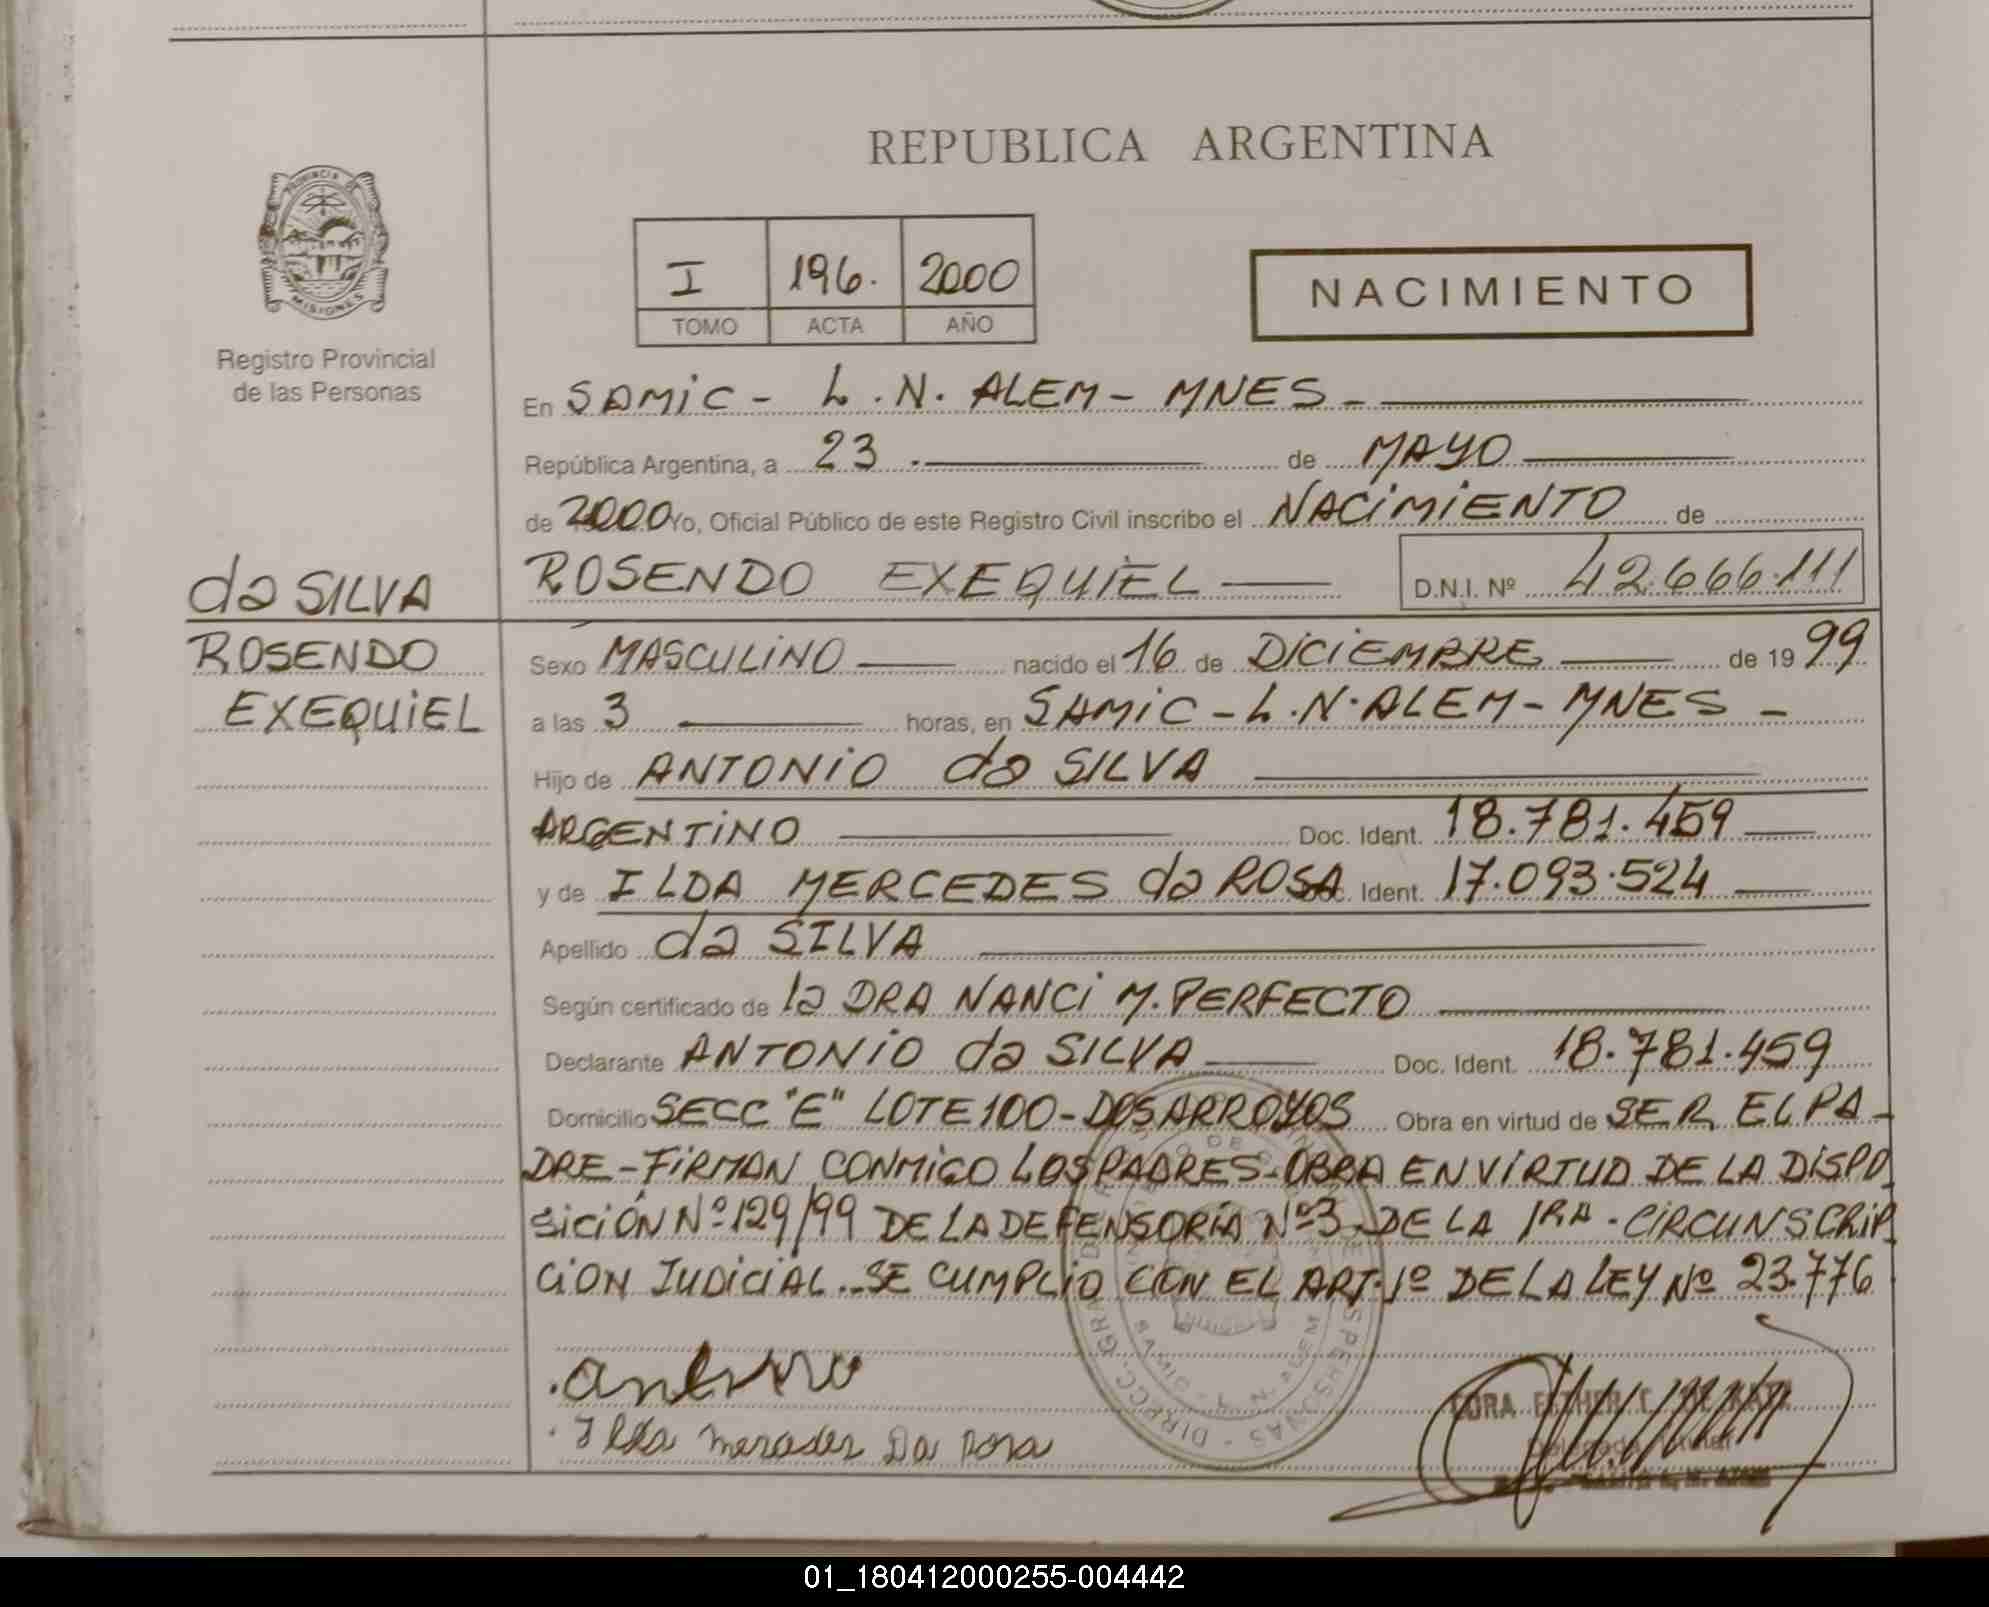 REPUBLICA ARGENTINA
PROVINCIA DE
MISIONES
Registro Provincial
de las Personas
I 196. 2000
TOMO ACTA AÑO
NACIMIENTO
En SAMiC - L.N. ALEM - MNES -
República Argentina, a 23. de MAYO
de 2000 Yo, Oficial Público de este Registro Civil inscribo el NACiMiENTO de
da SILVA
ROSENDO EXEQUiEL D.N.I. Nº 42.666.111
ROSENDO
EXEQUiEL
Sexo MASCULiNO nacido el 16 de DiCiEMBRE de 19 99
a las 3 horas, en SAMiC - L.N. ALEM - MNES -
Hijo de ANTONiO da SILVA
ARGENTiNO Doc. Ident. 18.781.459
y de ILDA MERCEDES da ROSA Doc. Ident. 17.093.524
Apellido da SILVA
Según certificado de la DRA NANCi M. PERFECTO
Declarante ANTONiO da SILVA Doc. Ident. 18.781.459
Domicilio SECC "E" LOTE 100 - DOS ARROYOS Obra en virtud de SER EL PA-
DRE - FiRMAN CONMiGO LOS PADRES - OBRA EN ViRTUD DE LA DiSPO
SiCiÓN Nº 129/99 DE LA DEFENSORíA Nº 3 - DE LA 1RA - CiRCUNSCRiP
CiON JUDiCiAL.. SE CUMPLiO CON EL ART. 1º DE LA LEY Nº 23.776
. Antonio
. Ilda Mercedes Da Rosa
01_180412000255-004442